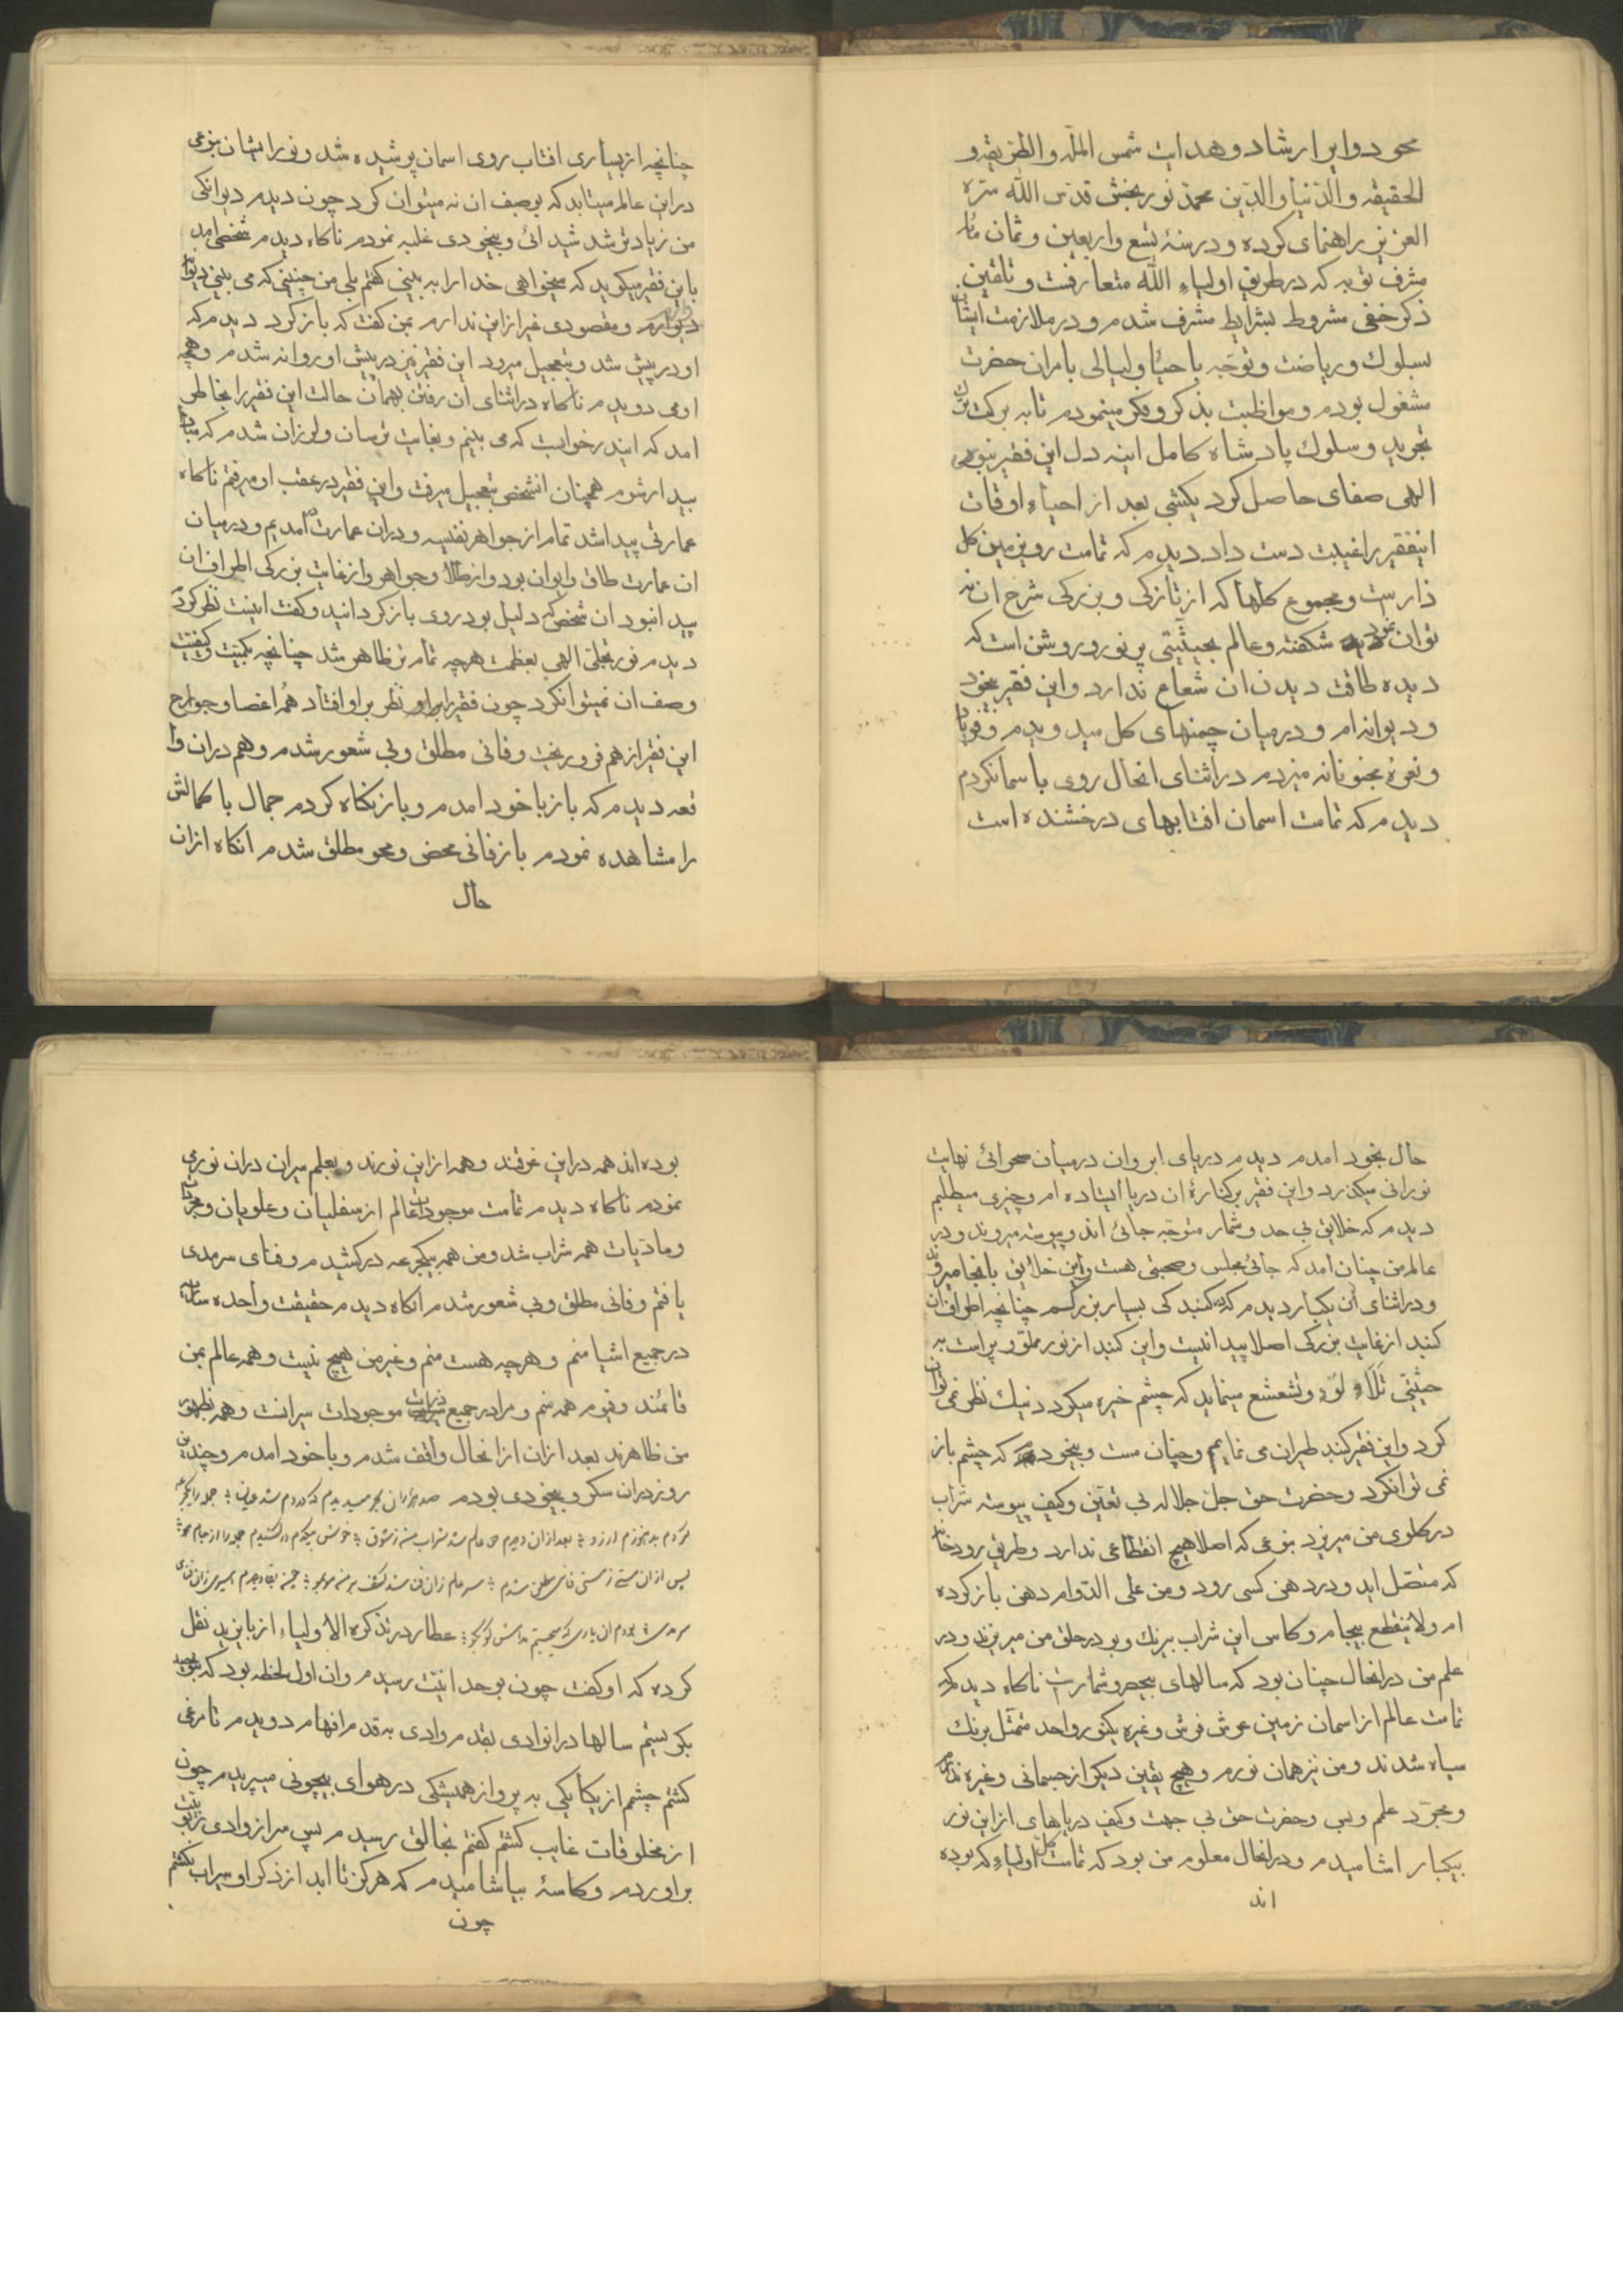 محو دو این ارشاد و هدایت شمس المله والطریقه و
الحقیقه والدنیا والدین محمد نور بخش قدس الله سره
العزیز راهنمای کرده و در سنهٔ تسع و اربعین و ثمان مأیه
مشرف توبه که در طریق اولیاء الله متعارفست و تلقین
ذکر خفی مشروط بشرایط مشرف شدم و در ملازمت ایشان
بسلوک و ریاضت و توجه باحیاء لیالی بامران حضرت
مشغول بودم و مواظبت بذکر و فکر مینمودم تا به برکت
تجرید و سلوک پادشاه کامل اینه دل این فقیر بنور
الهی صفای حاصل کرد یکشبی بعد از احیاء اوقات
اینفقیر را غیبت دست داد دیدم که تمامت روی زمین کل
ذارست و مجموع کلها که از تازکی و بزرکی شرح ان نه
توان نمود شکفته و عالم بحیثیتی پر نور و روشن است که
دیده طاقت دیدن ان شعاع ندارد و این فقیر بیخود
و دیوانه ام و در میان چمنهای کل میدویدم و فریاد
و نعرهٔ مجنونانه میزدم در اثنای انحال روی باسمان کردم
دیدم که تمامت اسمان افتابهای درخشنده است
چنانچه از بسیاری افتاب روی اسمان پوشیده شد و نور ایشان بنوعی
در این عالم میتابد که بوصف ان نه میتوان کرد چون دیدم دیوانکی
من زیادتر شد شیدائی و بیخودی غلبه نمودم ناکاه دیدم شخصی امد
باین فقیر میکوید که میخواهی خدا را به بینی کفتم بلی من چنینی که می بینی دیوانه
دیدارم و مقصودی غیر از این ندارم بمن کفت که باز کرد دیدم که
او در پیش شد و بتعجیل میرود این فقیر نیز در پیش او روانه شدم و همچه
او می دویدم ناکاه در اثنای ان رفتن بهمان حالت این فقیر را بخاطر
امد که ایندر خوابست که می بینم و بغایت ترسان و لرزان شدم که مبادا
بیدار شوم همچنان انشخص بتعجیل میرفت و این فقیر در عقب او میرفتم ناکاه
عمارتی پیدا شد تمام از جواهر نفیسه و در ان عمارت در امدیم و در میان
ان عمارت طاق و ایوان بود و از طلا و جواهر و از غایت بزرکی اطراف ان
پیدا نبود ان شخص که دلیل بود روی باز کردانید و کفت اینست نظر کردم
دیدم نور تجلی الهی بعظمت هرچه تمام تر ظاهر شد چنانچه بکمیت و کیفیت
وصف ان نمیتوانکرد چون فقیر را نظر بر او افتاد همه اعضا و جوارح
این فقیر از هم فرو ریخت و فانی مطلق و بی شعور شدم و هم در ان وا
قعه دیدم که باز باخود امدم و باز نکاه کردم جمال با کمالش
را مشاهده نمودم باز فانی محض و محو مطلق شدم انکاه از ان
حال
حال بخود امدم دیدم دریای ابروان در میان صحرائی نهایت
نورانی میکذرد و این فقیر بر کنارهٔ ان دریا ایستاده ام و چیزی میطلبم
دیدم که خلایق بی حد و شمار متوجه جائی اند و پیوسته میروند و در
عالم من چنان امد که جائی مجلس و صحبتی هست و این خلایق بانجا میروند
و در اثنای ان یکبار دیدم که کنبدکی بسیار بزرکسم چنانچه اطراف ان
کنبد از غایت بزرکی اصلا پیدا نیست و این کنبد از نور مملو و پر است به
حیثیتی تلالاء لؤ و تشعشع مینماید که چشم خیره میکردد نیک نظر نمی توان
کرد و این فقیر کنبد طیران می نمایم و چنان مست و بیخود که چشم باز
نمی توانکرد و حضرت حق جل جلاله بی تعین و کیف پیوسته شراب
در کلوی من میریزد بنوعی که اصلا هیچ انقطاعی ندارد و طریق رودخانه
که متصل اید و در دهن کسی رود و من علی الدوام دهن باز کرده
ام و لاینقطع بیجام و کاس این شراب بیرنک و بو در حلق من میریزند و در
علم من در انحال چنان بود که سالهای بیحصر و شمارست ناکاه دیدم که
تمامت عالم از اسمان زمین عرش فرش و غیره یکنور واحد متمثل برنک
سیاه شدند و من نیز همان نورم و هیچ تعین دیکر از جسمانی و غیره ندارم
و مجرد علم و بس و حضرت حق بی جهت و کیف دریاهای از این نور
بیکبار اشامیدم و در انحال معلوم من بود که تمامت کل اولیاء که بوده
اند
بوده اند همه در این غرقند و همه از این نورند و بعلم سیران در ان نوری
نمودم ناکاه دیدم تمامت موجودات عالم از سفلیان و علویان و مجردات
و مادیات همه شراب شد و من همه بیکجرعه درکشیدم و فنای سرمدی
یافتم و فانی مطلق و بی شعور شدم انکاه دیدم حقیقت واحده ساریه
در جمیع اشیا منم و هرچه هست منم و غیر من هیچ نیست و همه عالم بمن
قائمند و قیوم همه منم و مرا در جمیع ذرات موجودات سیرانست و همه بظهور
من ظاهرند بعد از ان از انحال واقف شدم و باخود امدم و چندین
روز در ان سکر و بیخودی بودم صد هزاران بحر
بعد از ان دیدم
سرمدی عطار در تذکره الاولیاء از بایزید نقل
کرده که او کفت چون بوحدانیت رسیدم و ان اول لحظه بود که بتوحید
نکریستم سالها در انوادی بقدم وادی به قدم افهام دویدم تا مرغی
کشتم چشم از یکانکی به پر و از همیشکی در هوای بیچونی میپریدم چون
از مخلوقات غایب کشتم کفتم بخالق رسیدم پس سر از وادی ربوبیت
براوردم و کاسهٔ بیاشامیدم که هرکز تا ابد از ذکر او سیراب نکشتم
چون